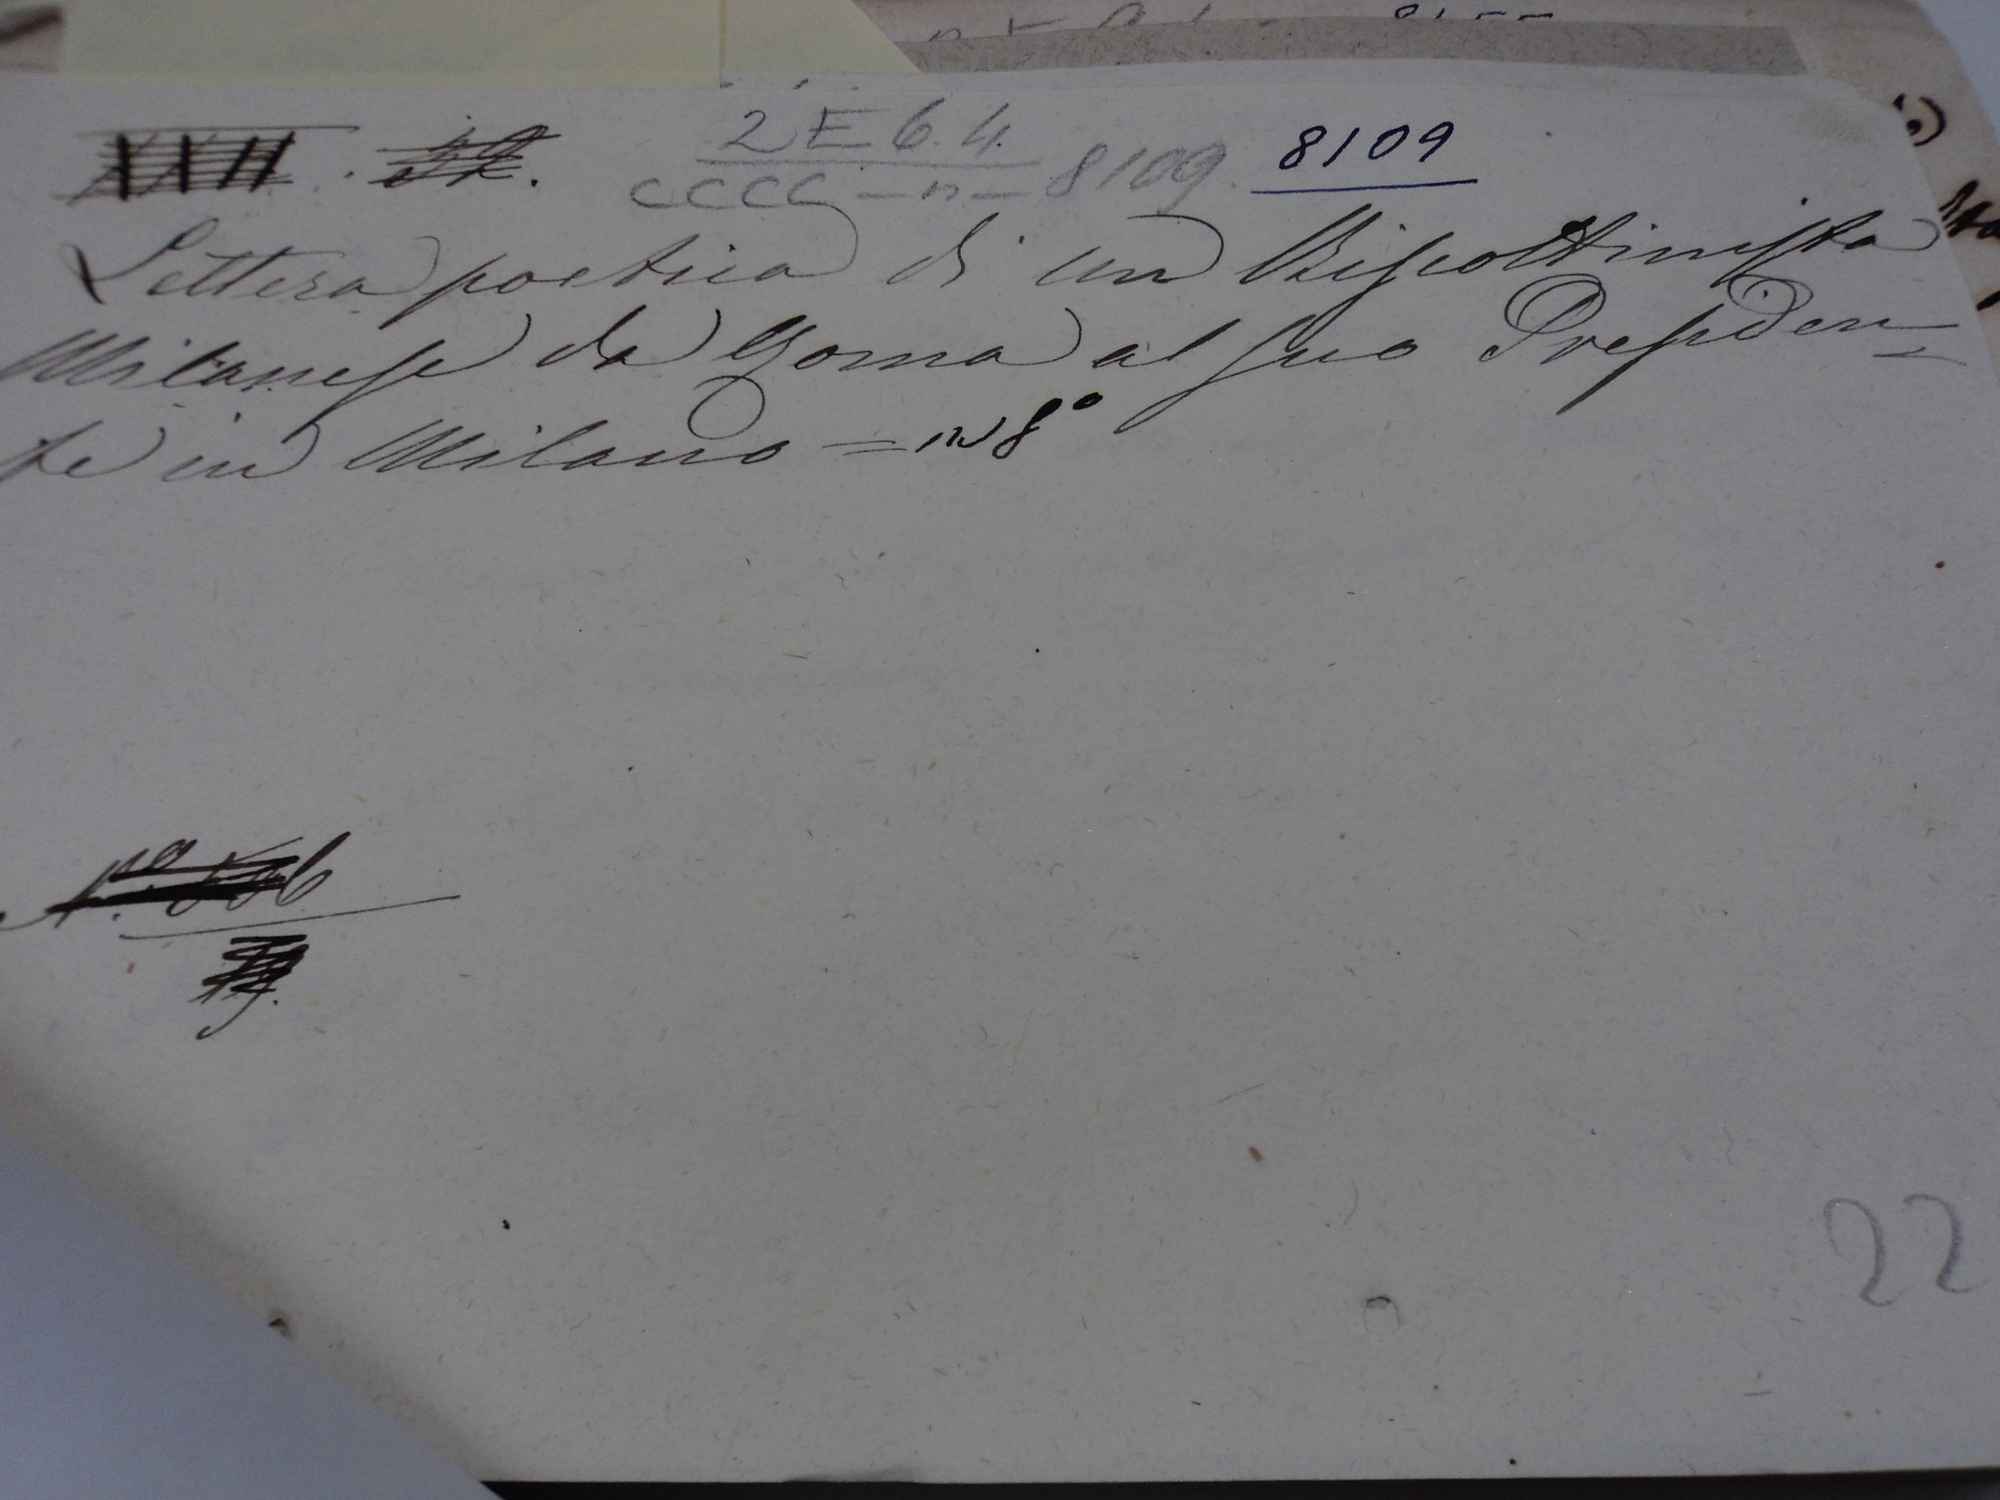 XXII.
2E 6.4.
CCCC — n — 8109. 8109
Lettera poetica di un Rispottinista
Milanese da Roma al suo Presiden-
te in Milano = in 8°
22